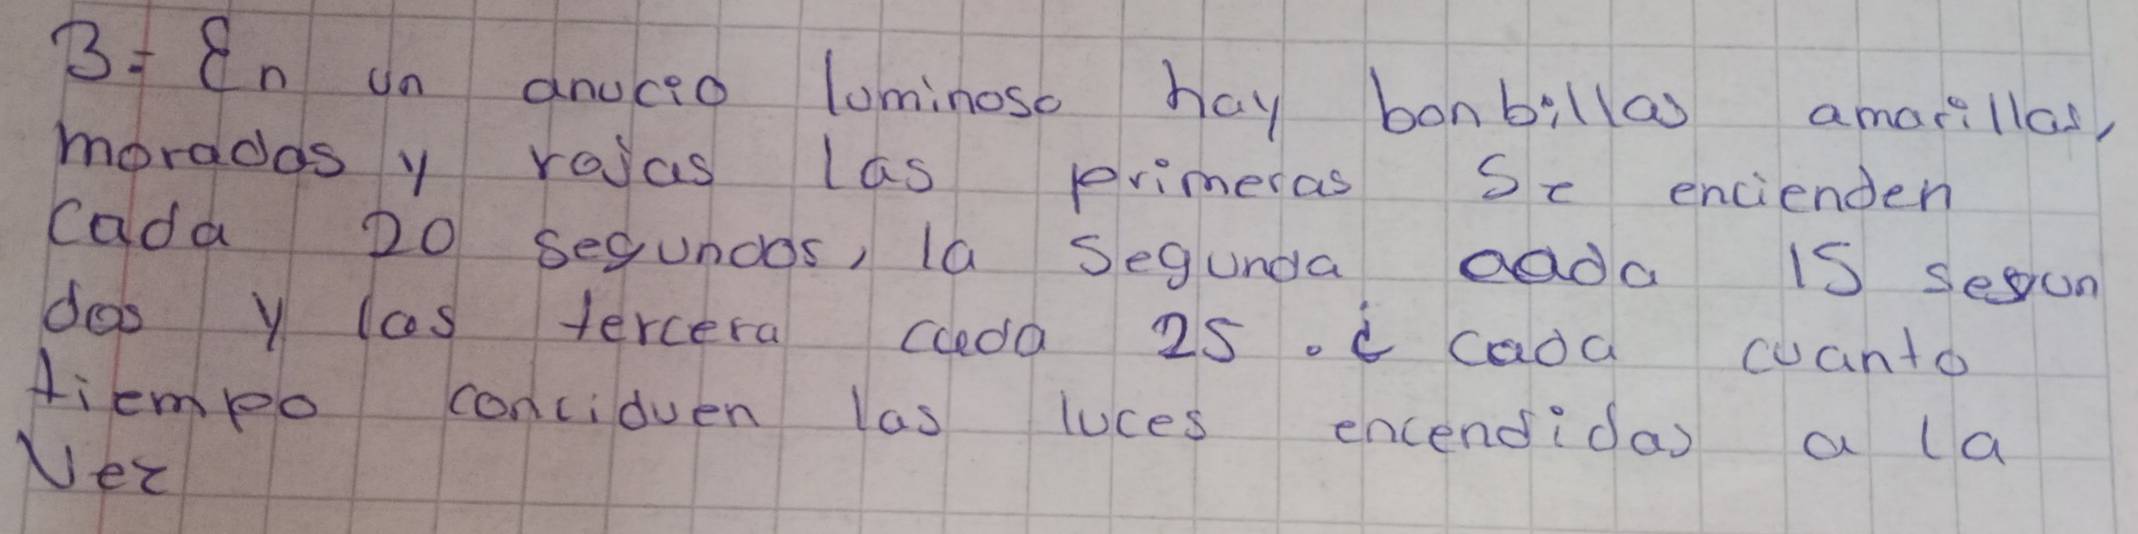 3= En un anucio luminoso hay bonbillas amarillas,
moradas y rojas las primeras se encienden
cada 20 segundos, la segunda cada 15 segun
dos y las tercera cada 25. ¿ cada cuanto
tiempo conciduen las luces encendidas a la
vez